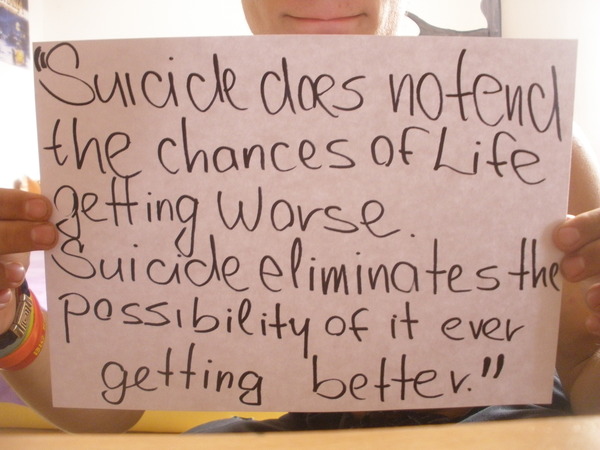 "Suicide does not end
the chances of Life
getting Worse.
Suicide eliminates the
possibility of it ever
getting better."